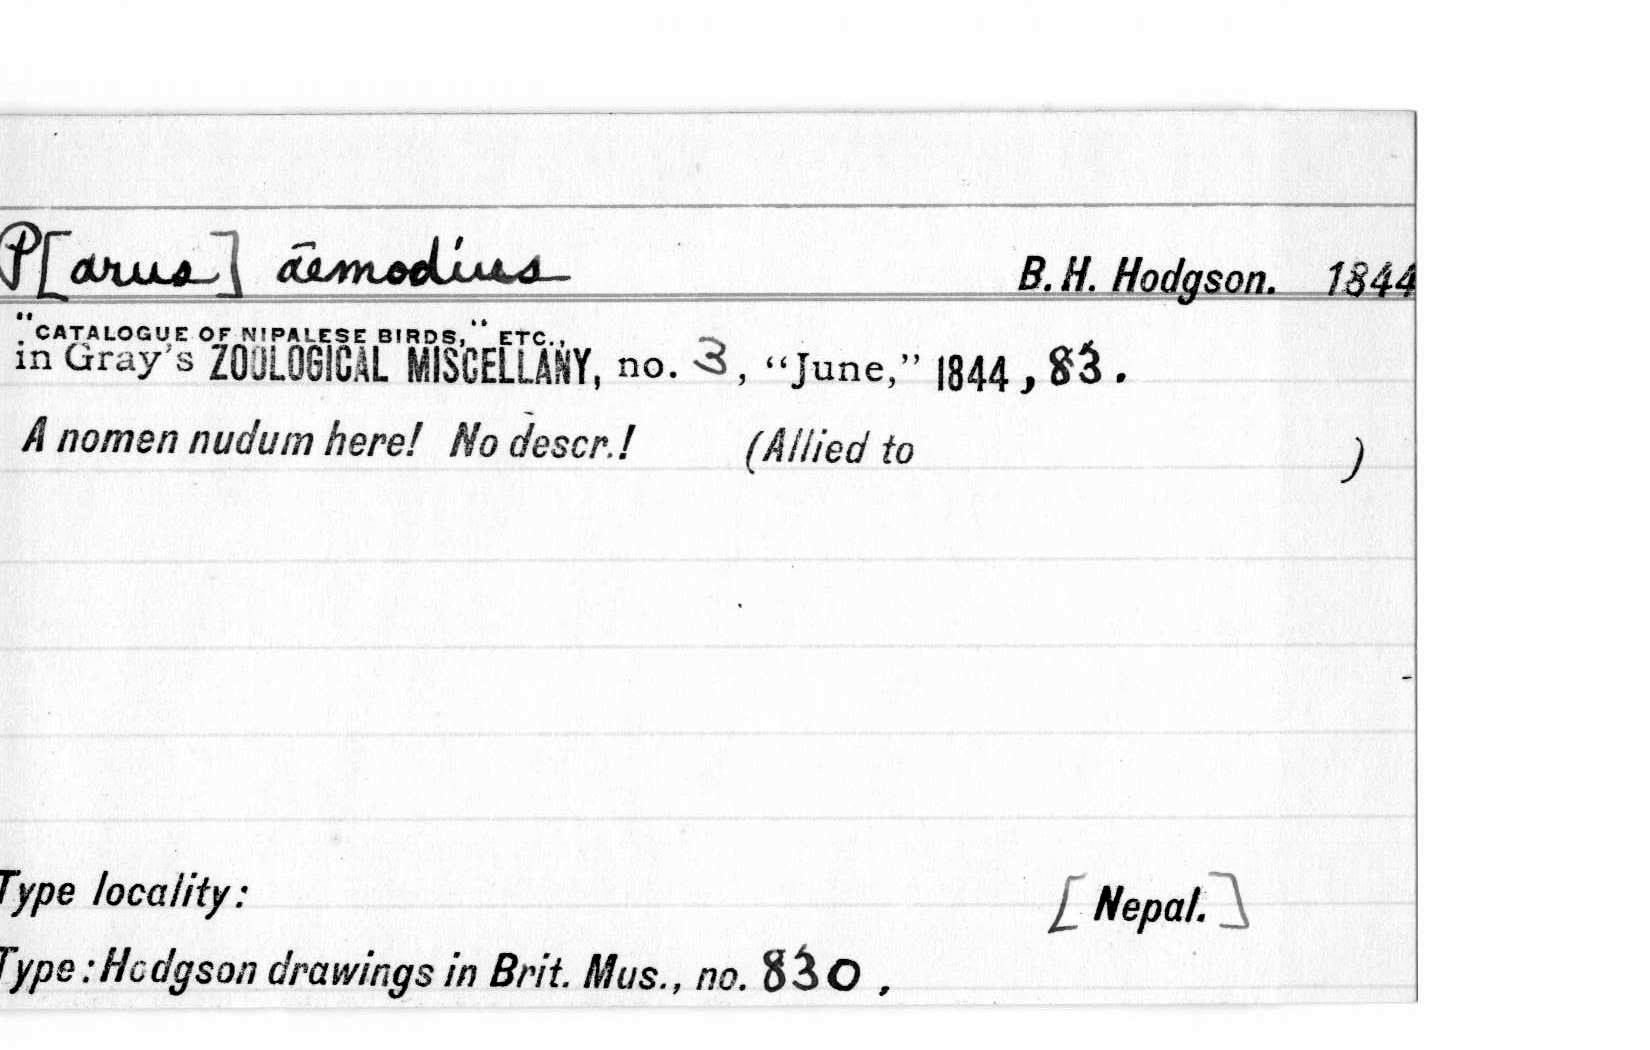 P[arus] āemodíus B. H. Hodgson. 1844
"CATALOGUE OF NIPALESE BIRDS," ETC.,
in Gray's ZOOLOGICAL MISCELLANY, no. 3, "June," 1844, 83.
A nomen nudum here! No descr.! (Allied to )
Type locality: [Nepal.]
Type: Hodgson drawings in Brit. Mus., no. 830.